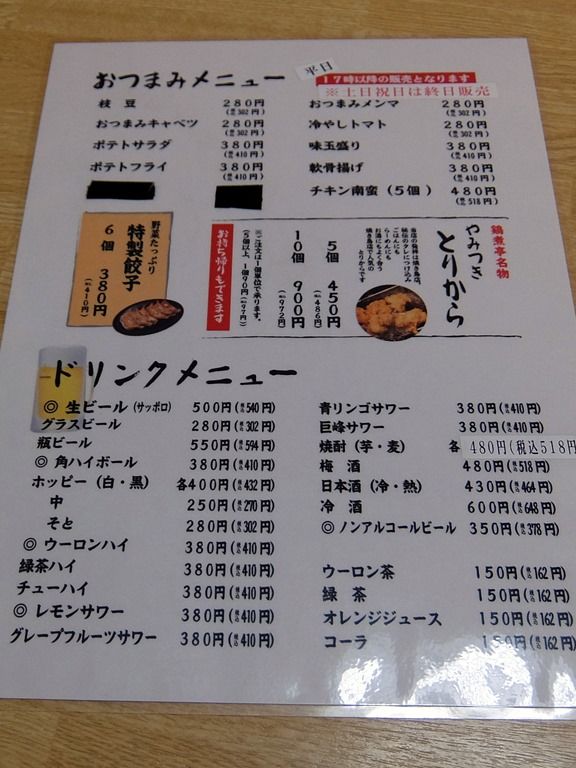 おつまみメニュー
平日
17時以降の販売となります
※土日祝日は終日販売
枝豆 280円
(税込302円)
おつまみキャベツ 280円
(税込302円)
ポテトサラダ 380円
(税込410円)
ポテトフライ 380円
(税込410円)
おつまみメンマ 280円
(税込302円)
冷やしトマト 280円
(税込302円)
味玉盛り 380円
(税込410円)
軟骨揚げ 380円
(税込410円)
チキン南蛮(5個) 480円
(税込518円)
野菜たっぷり
特製餃子
6個 380円
(税込410円)
鶏煮亭名物
やみつき
とりから
当店の発祥は焼き鳥店。
秘伝のタレにつけ込み
ごはんにも
らーめんにも
お酒にもよく合う
焼き鳥店で人気の
とりからです
5個 450円
(税込486円)
10個 900円
(税込972円)
※ご注文は1個単位で承ります。
(5個以上、1個90円(税込97円))
お持ち帰りもできます
ドリンクメニュー
◎生ビール(サッポロ) 500円(税込540円)
グラスビール 280円(税込302円)
瓶ビール 550円(税込594円)
◎角ハイボール 380円(税込410円)
ホッピー(白・黒) 各400円(税込432円)
中 250円(税込270円)
そと 280円(税込302円)
◎ウーロンハイ 380円(税込410円)
緑茶ハイ 380円(税込410円)
チューハイ 380円(税込410円)
◎レモンサワー 380円(税込410円)
グレープフルーツサワー 380円(税込410円)
青リンゴサワー 380円(税込410円)
巨峰サワー 380円(税込410円)
焼酎(芋・麦) 各480円(税込518円
梅酒 480円(税込518円)
日本酒(冷・熱) 430円(税込464円)
冷酒 600円(税込648円)
◎ノンアルコールビール 350円(税込378円)
ウーロン茶 150円(税込162円)
緑茶 150円(税込162円)
オレンジジュース 150円(税込162円)
コーラ 150円(税込162円)